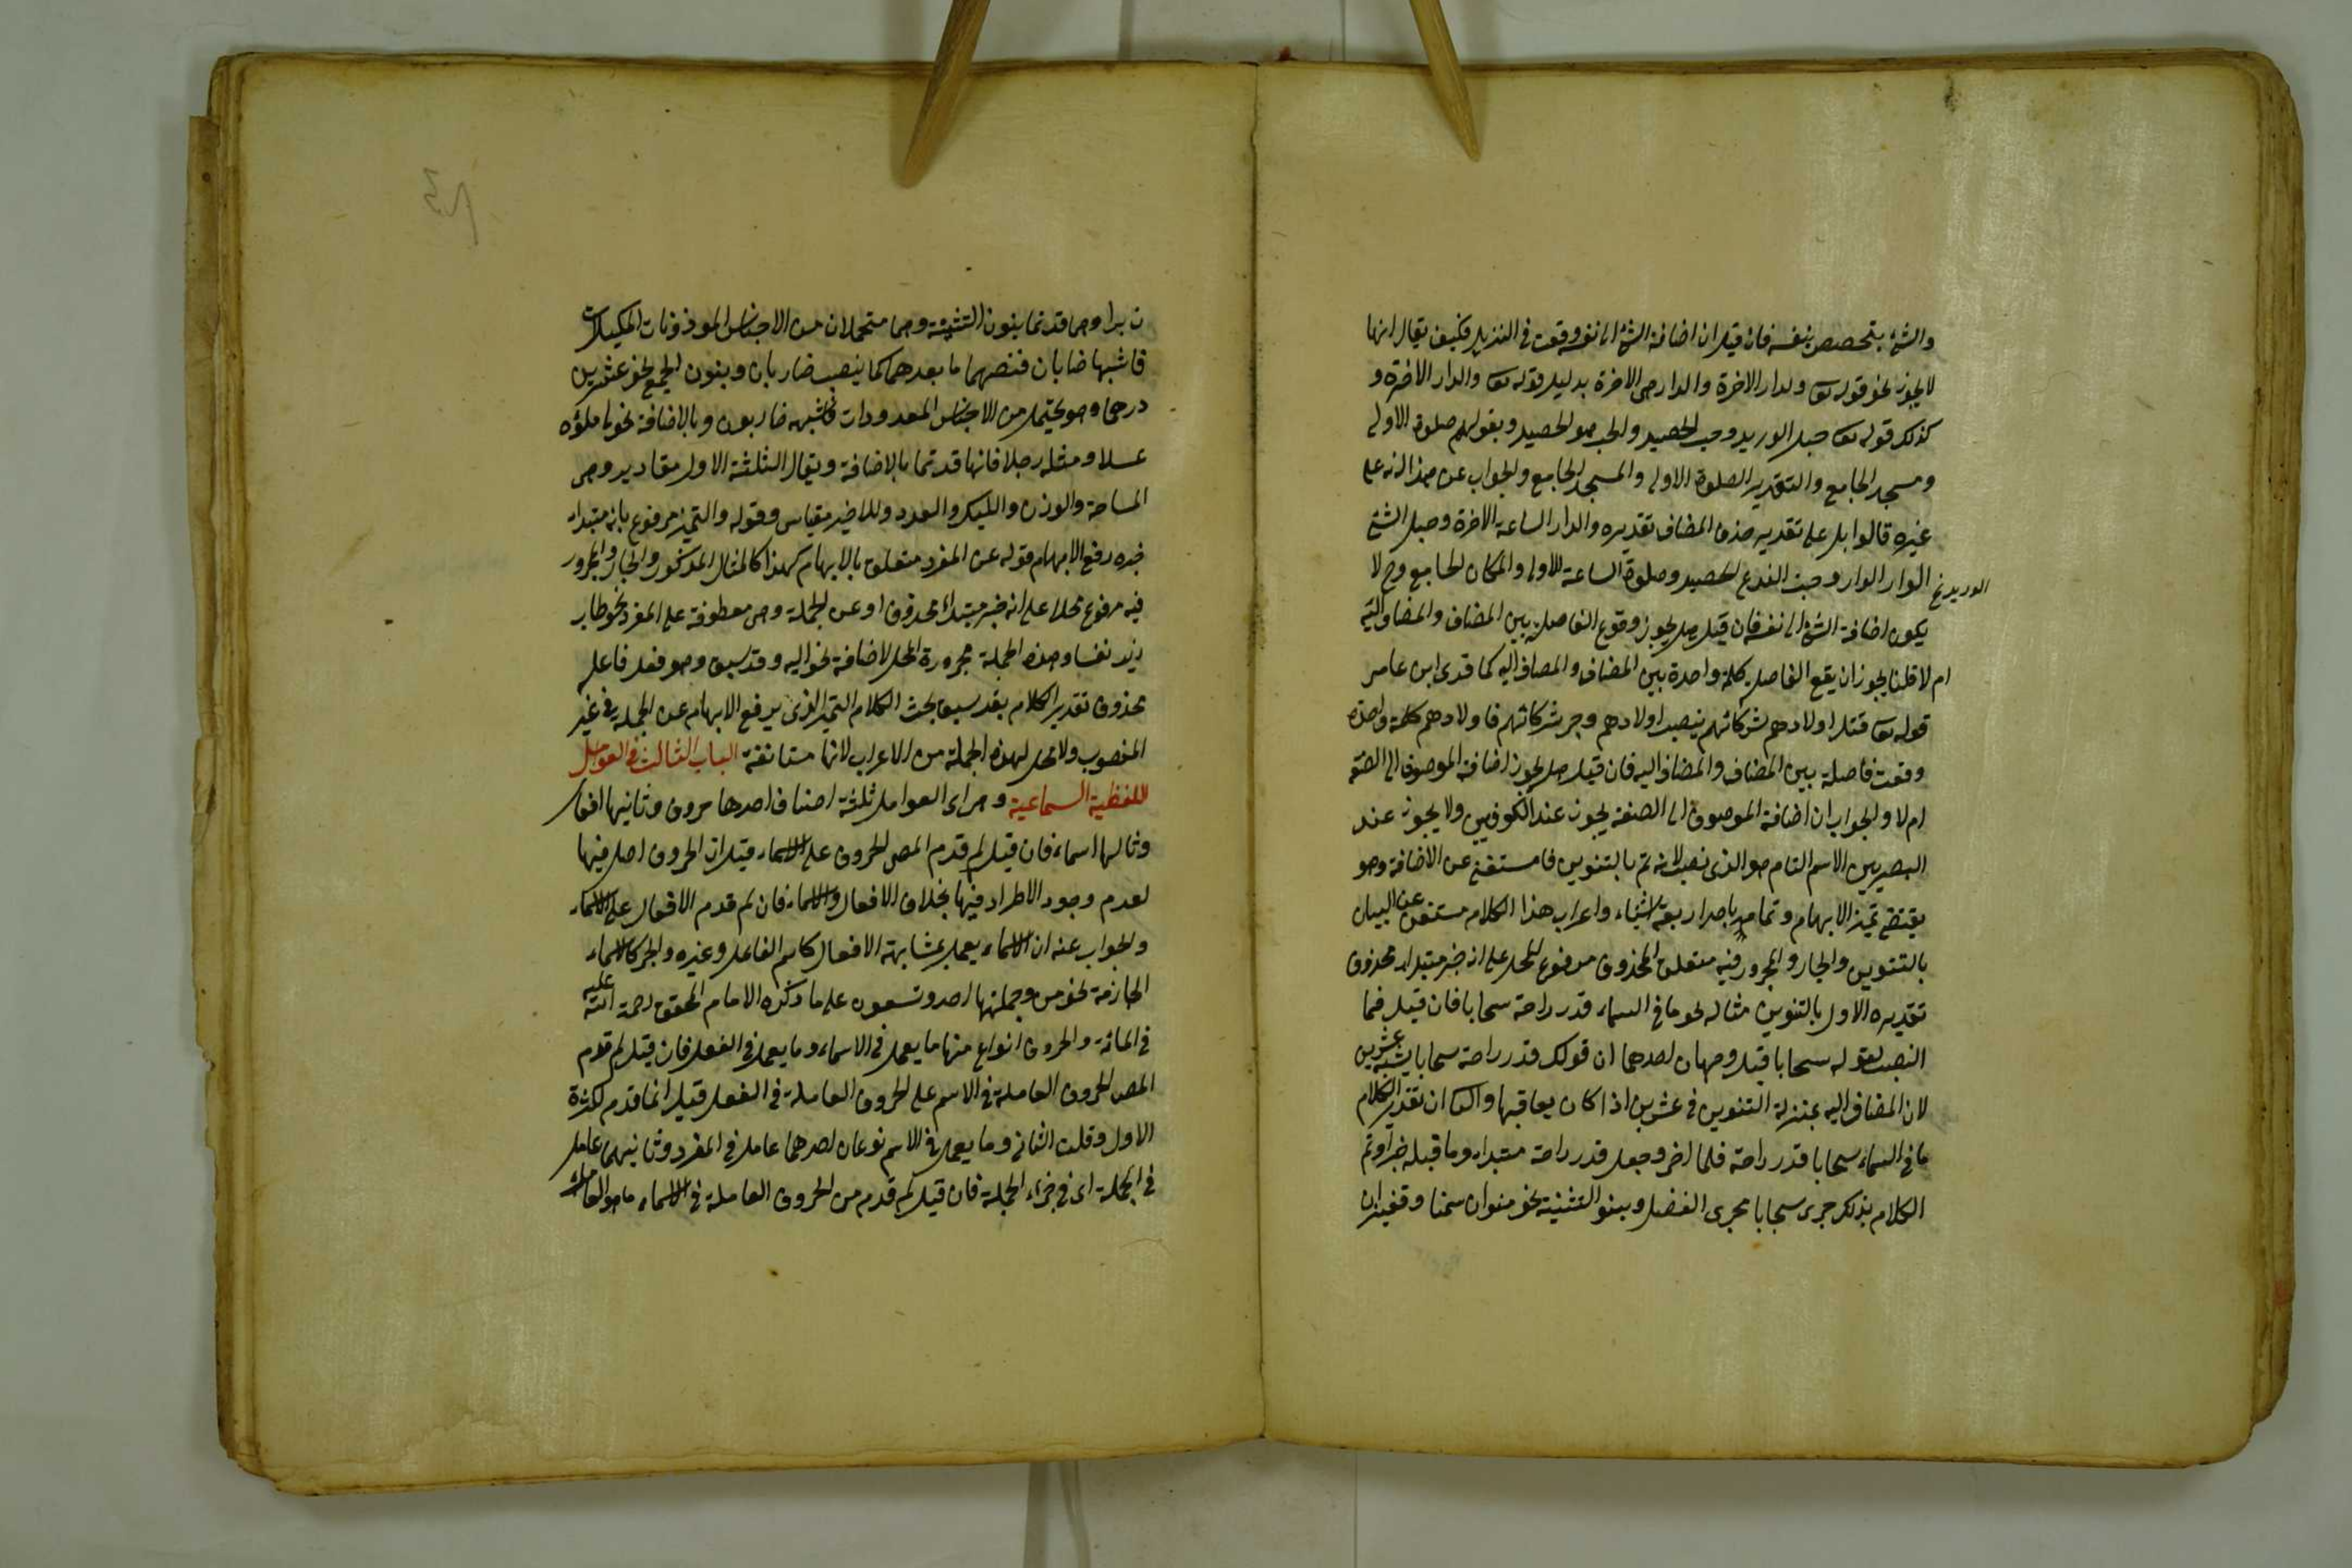 والشئ يتخصص بنفسه فان قيل ان اضافة الشئ الى نفسه وقعت في التنزيل فكيف يقال انها
لا يجوز نحو قوله تعا ولدار الاخرة والدار هي الاخرة بدليل قوله تعا والدار الاخرة و
كذلك قوله تعا حبل الوريد وحب الحصيد والحب هو الحصيد وبقولهم صلوة الاولى
ومسجد الجامع والتقدير الصلوة الاولى والمسجد الجامع والجواب عن هذا انه على
غيره قالوا بل على تقدير حذف المضاف تقديره والدار الساعة الاخرة وحبل الشئ
الوريد نخ
الوار الوار وحبت الفدع الحصيد وصلوة الساعة الاولى والمكان الجامع وح لا
يكون اضافة الشئ الى نفسه فان قيل هل يجوز وقوع الفاصلة بين المضاف والمضاف اليه
ام لا قلنا يجوز ان يقع الفاصل كلمة واحدة بين المضاف والمضاف اليه كما قرئ ابن عامر
قوله تعا قتل اولادهم شركائهم بنصب اولادهم وجر شركائهم فاولادهم كلمة واحدة
وقعت فاصلة بين المضاف والمضاف اليه فان قيل هل يجوز اضافة الموصوف الى الصفة
ام لا والجواب ان اضافة الموصوف الى الصفة يجوز عند الكوفيين ولا يجوز عند
البصريين الاسم التام هو الذي نصب لانه تم بالتنوين فاستغنى عن الاضافة وهو
يقتضي تميز الابهام وتمامه باحد اربعة اشياء واعراب هذا الكلام مستغن عن البيان
بالتنوين والجار والمجرور فيه متعلق المحذوف مرفوع المحل على انه خبر مبتداء محذوف
تقديره الاول بالتنوين مثاله نحو ما في السماء قدر راحة سحابا فان قيل فما
النصب لقوله سحابا قيل وجهان احدهما ان قولك قدر راحة سحابا يشبه عشرين
لان المضاف اليه بمنزلة التنوين في عشرين اذا كان يعاقبها والثا ان تقدير الكلام
ما في السماء سحابا قدر راحة فلما اخر وجعل قدر راحة مبتداء وما قبله خبرا وتم
الكلام بذلك جرى سحابا مجرى الفضل وبنو التثنية نحو منوان سمنا وقفيزان
ن برا وهي قد تما بنون التثنية وهما متحملان من الاجناس الموزونات المكيلات
فاشبها ضاربان فنصبهما ما بعدهما كما ينصب ضاربان وبنون الجمع نحو عشرين
درهما وهو يحتمل من الاجناس المعدودات فاشبه ضاربون وبالاضافة نحو ما ملؤه
عسلا ومثله رجلا فانها قد تما بالاضافة ويقال الثلثة الاول مقادير وهي
المساحة والوزن والكيل والعدد وللاخير مقياس وقوله والتميز مرفوع بانه مبتداء
خبره رفع الابهام قوله عن المفرد متعلق بالابهام كهذا كالمثال المذكور والجار والمجرور
فيه مرفوع محلا على انه خبر مبتداء محذوف او عن الجملة وهي معطوفة على المفرد نحو طاب
زيد نفسا وهذه الجملة مجرورة المحل لاضافة نحو اليه وقد سبق وهو فعل فاعله
محذوف تقدير الكلام بقد سبق بحث الكلام التميز الذي يرفع الابهام عن الجملة في غير
المنصوب ولا محل لهذه الجملة من الاعراب لانها مستانفة الباب الثالث في العوامل
اللفظية السماعية وهي اى العوامل ثلثة اصناف احدها حروف وثانيها افعال
وثالثها اسماء فان قيل لم قدم المص الحروف على الاسماء قيل ان الحروف اصل فيها
لعدم وجود الاطراد فيها بخلاف الافعال والاسماء فان لم قدم الافعال على الاسماء
والجواب عنه ان الاسماء يعمل بمشابهة الافعال كاسم الفاعل وغيره والجر كالاسماء
الجازمة نحو من وجملتها احد وتسعون على ما ذكره الامام المحقق رحمة الله عليه
في المائة والحروف انواع منها ما يعمل في الاسماء وما يعمل في الفعل فان قيل لم قدم
المص الحروف العاملة في الاسم على الحروف العاملة في الفعل قيل انما قدم لكثرة
الاول وقلت الثاني وما يعمل في الاسم نوعان احدهما عامل في المفرد وثانيهما عامل
في الجملة اى في جزء الجملة فان قيل لم قدم من الحروف العاملة في الاسماء ما هو العاملة